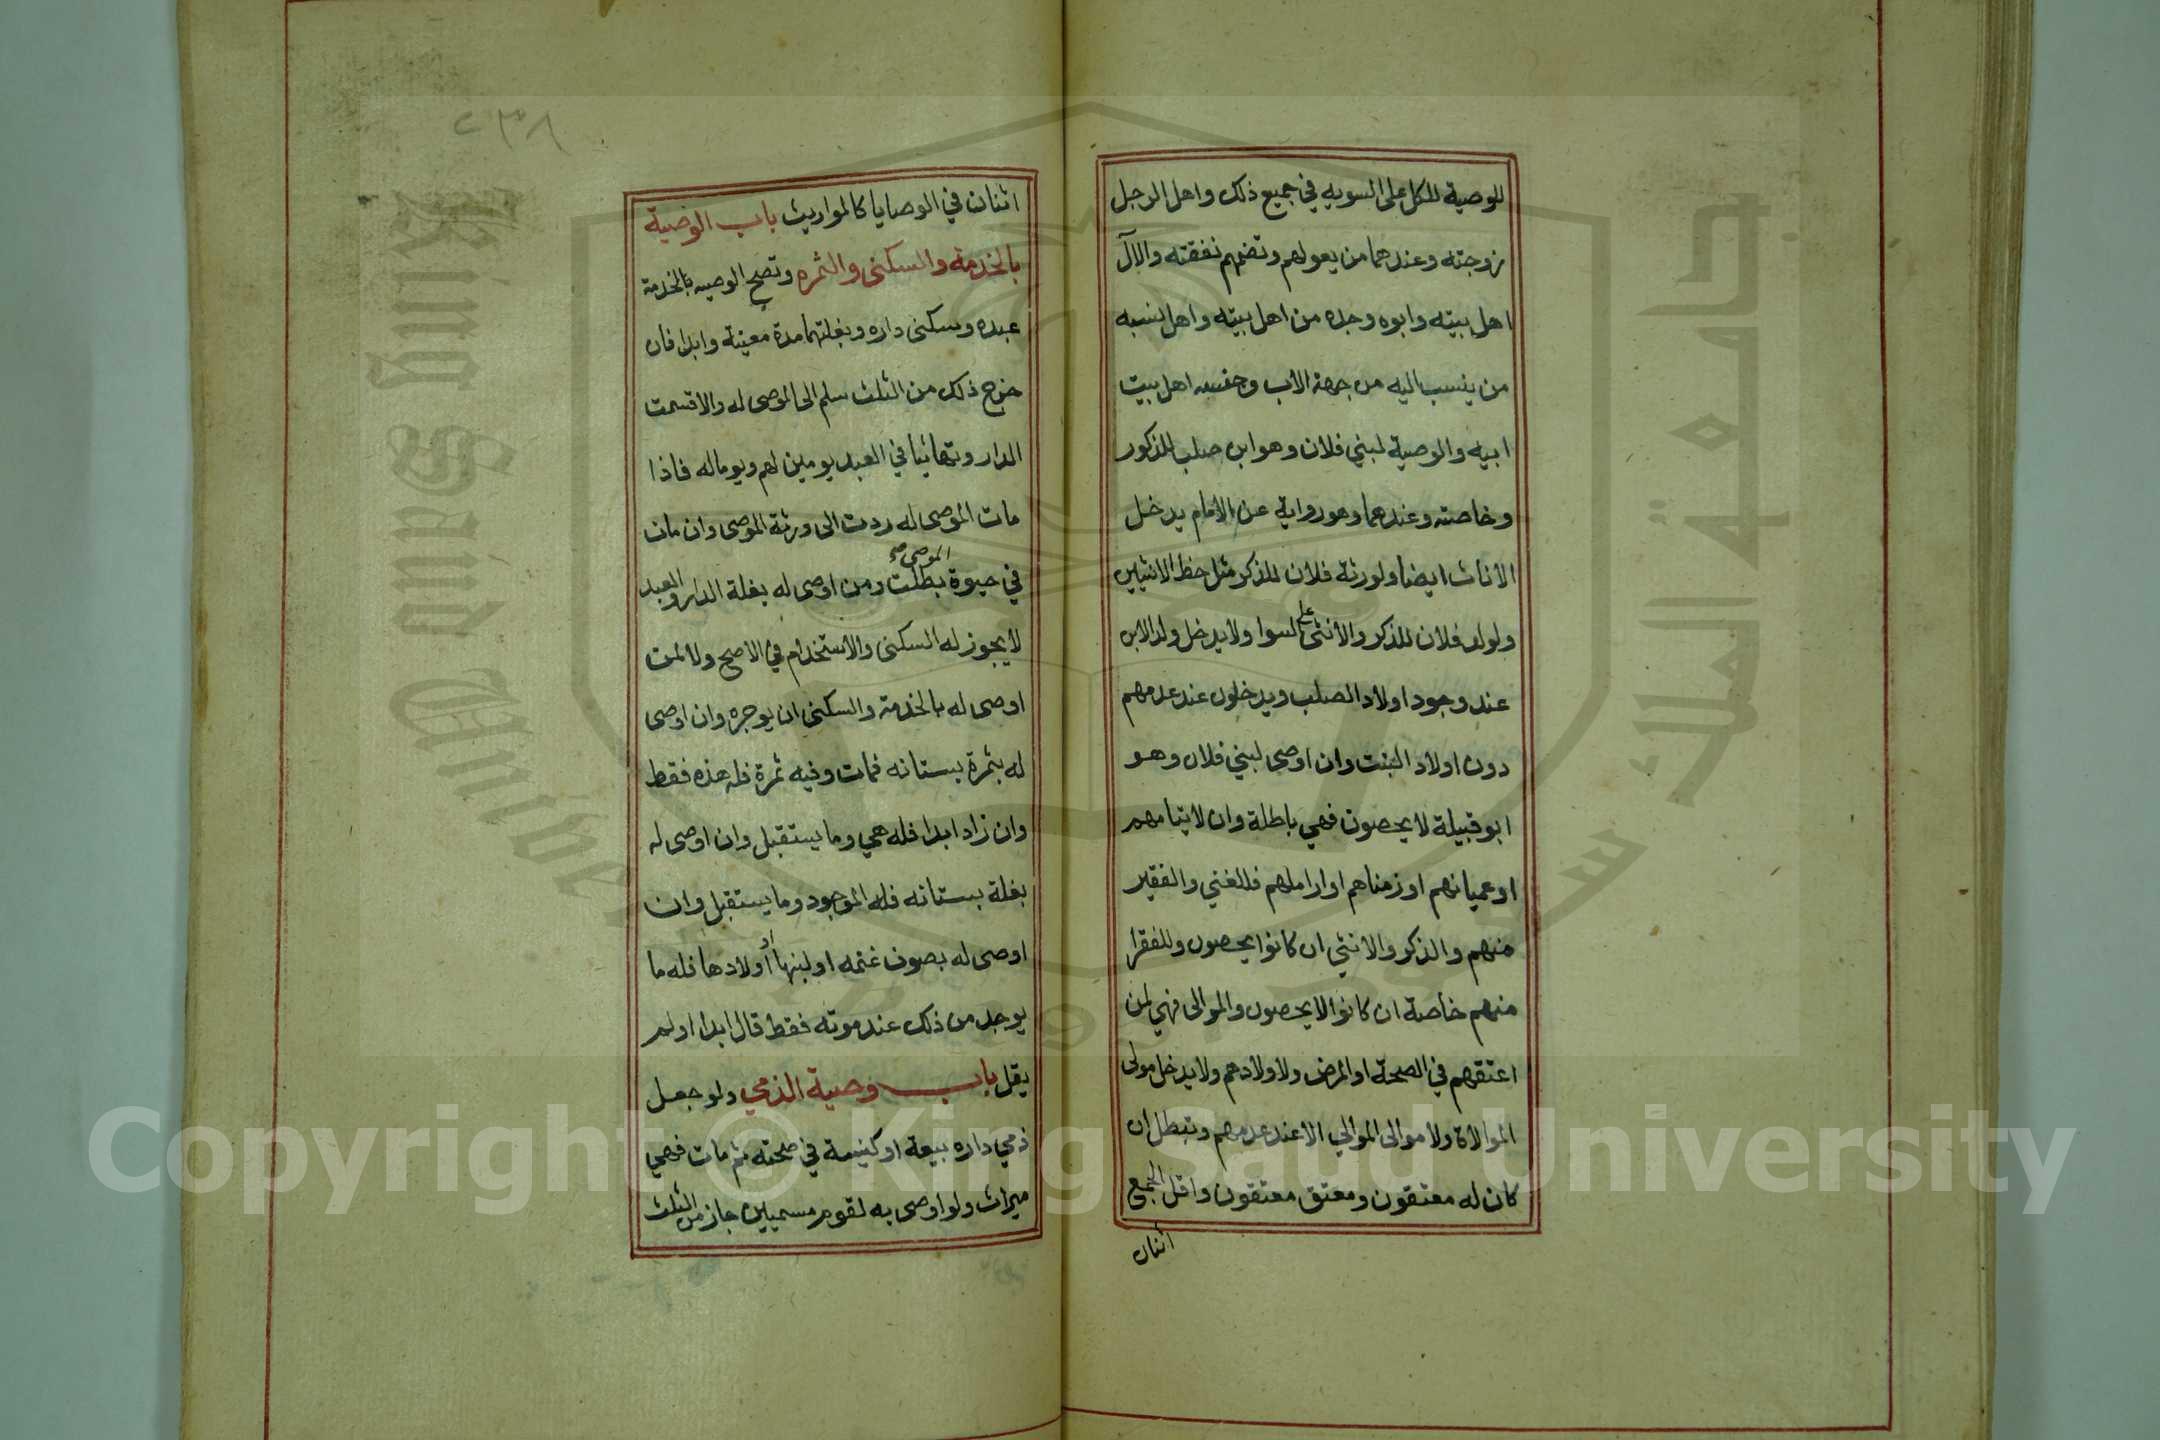 للوصية للكل على السويه في جميع ذلك واهل الرجل
زوجته وعندهما من يعولهم وتضمهم نفقته والآل
اهل بيته وابوه وجده من اهل بيته واهل نسبه
من ينسب اليه من جهة الاب وجنسه اهل بيت
ابيه والوصية لبني فلان وهو ابن صلب للذكور
وخاصته وعندهما وهو رواية عن الامام يدخل
الاناث ايضا ولورثة فلان للذكر مثل حظ الانثيين
ولولد فلان للذكر والأنثى على السوا ولا يدخل ولد الابن
عند وجود اولاد الصلب ويدخلون عند عدمهم
دون اولاد البنت وان اوصى لبني فلان وهو
ابو قبيلة لا يحصون فهي باطلة وان لايتامهم
او عميانهم او زمناهم او اراملهم فللغني والفقير
منهم والذكر والانثي ان كانوا يحصون وللفقرا
منهم خاصة ان كانوا لا يحصون والموالى فهي لمن
اعتقهم في الصحة او المرض ولاولادهم ولا يدخل مولى
الموالاة ولا موالى الموالي الا عند عدمهم وتبطل ان
كان له معتقون ومعتق معتقون واقل الجمع
اثنان
٢٣٨
اثنان في الوصايا كالمواريث باب الوصية
بالخدمة والسكنى والثمره وتصح الوصيه بالخدمة
عبده وسكنى داره وبغلتهما مدة معينة وابدا فان
خرج ذلك من الثلث سلم الى الموصى له والا قسمت
الدار وتهائيا في العبد يومين لهم ويوما له فاذا
مات الموصى له ردت الى ورثة الموصى وان مات
في حيوة الموصى صح بطلت ومن اوصى له بغلة الدار والعبد
لا يجوز له السكنى والاستخدام في الاصح ولا لمن
اوصى له بالخدمة والسكنى ان يوجره وان اوصى
له بثمرة بستانه فمات وفيه ثمرة فله هذه فقط
وان زاد ابدا فله هي وما يستقبل وان اوصى له
بغلة بستانه فله الموجود وما يستقبل وان
اوصى له بصوف غنمه او لبنها او اولادها فله ما
يوجد من ذلك عند موته فقط قال ابدا او لم
يقل باب وصية الذمي ولو جعل
ذمي داره بيعة او كنيسة في صحته ثم مات فهي
ميراث ولو اوصى به لقوم مسميين جاز من الثلث
جامعة الملك سعود
King Saud University
1957
Copyright © King Saud University